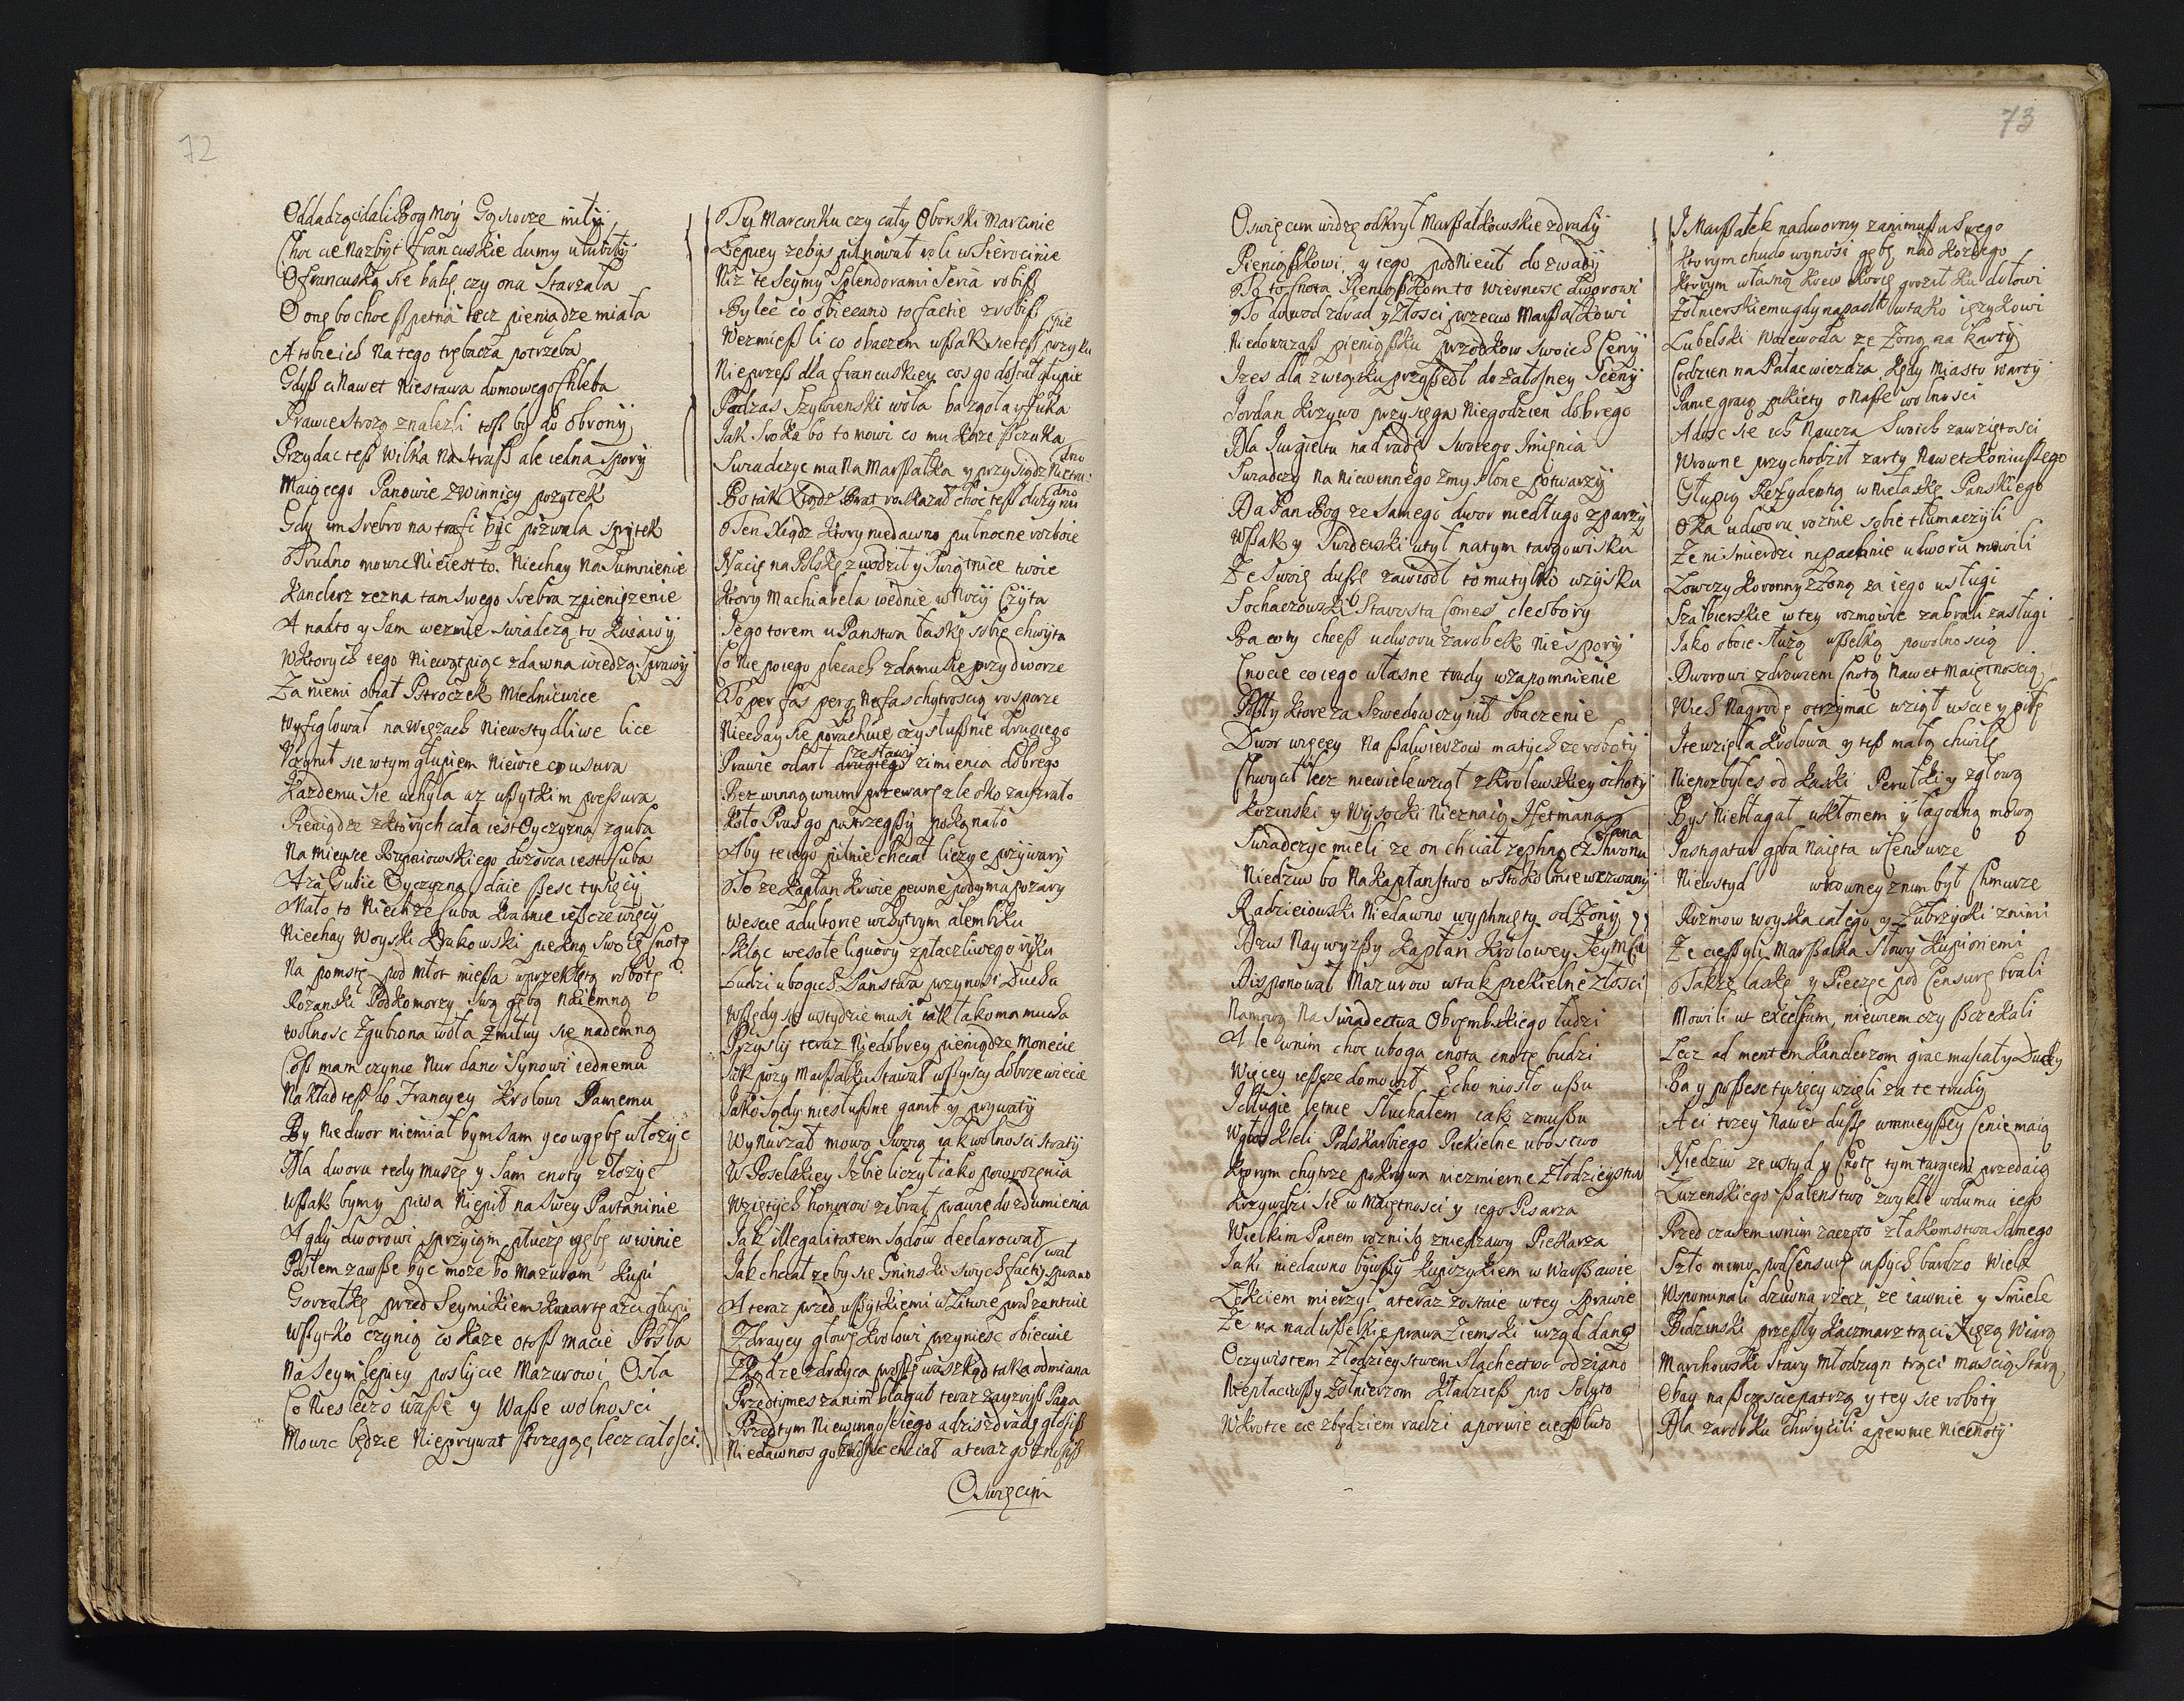 72
Oddadzą ci dali Bog moy miły
Choc cie nazbyt francuskie dumy ulubiły
O francuską sie babę czy ona starzała
O onę bo choc ßpetna lecz pieniądze miała
A tobie ich na tego trębacza potrzeba
Gdyß ci nawet niestawa domowego chleba
Prawie strożą znalezli teß by do obrony
Przydac teß Wilka na straß ale iedna spory
Maią cego Panowie Zwinnicy pozytek
Gdy im srebro na być pozwala spytek
Trudno mowic nieiest to. Niechay na sumnienie
Kanclerz zezna tam swego srebra zpienięzenie
A nadto y sam wezmie swiadczą to
W ktorych iego niewątpiąc zdawna wiedzą sprawy
Za niemi obrał Potroczek Miednicwice
Wyfiglował na niewstydliwe lice
Uczynił sie w tym głupiem niewiem co usura
Kazdemu sie uchyla az wßytkim preßura
Pieniądze z ktorych cała iest Oyczyzna zguba
Na mieysce dozorca iest
Aza Oyczyzna daie ßesc tysięcy
Mało to niech ze kradnie ießcze więcy
Niechay Woyski Krakowski piekną swoię cnotę
Na pomstę pod młot mießa w przeklętą robotę
Rozanski Podkomorzy swą gębą naiemną
Wolnosc zgubiona woła zmiłuy się nademną
Coß mam czynic Nur dano synowi iednemu
Nakład teß do Francyey Krolowi Samemu
By niedwor niemiał bym sam y co w gębę włozyc
Dla dworu tedy muszę y sam cnoty złozyc
Wßak bymy piwa niepił na swey Partaninie
A gdy dworowi sprzyiam płuczę gębę w winie
Posłem zawße byc moze bo Mazurom kupi
Gorzałkę przed Seymikiem kwartę azci głupi
Wßytko czynią co kaze otoß macie Posła
Na seym lepiey poslycie Mazurowi Osła
Co nieslecz o waße y waße wolnosci
Mowic będzie nieprywat strzegąc lecz całosci.
Ty Marcinku czy cały Oborski Marcinie
Lepiey zebys pilnował roli w Sierocinie
Niz te Seymy Splendorami Seria robiß
By leć co obiecano to factie zrobiß
Wezmieß li co obaczem wßak sie teß przyku
pie
Nieprzeß dla francuskiey cos go dostał głupie
Podzas Szydowski woła bazgola y ßuka
Jak Sroka bo to mowi co mu kaze ßczuka
Swiadczyc mu na Marßałka y przysiądz nietru:
dno
Bo tak Xiądz Brat roskazał choc teß
dno
Ten Xiądz ktory niedawno pułnocne rozboie
Nacię na Polskę zwodził y Swiątnice twoie
Ktory Machiavela wednie w nocy czyta
Jego torem u Panstwa łaskę sobie chwyta
Co nie po iego plecach zdamu się przy dworze
To per fas per nefas chytroscią rosporze
Niechay sie porachuie czy słußnie drugiego
Prawie odarł drugiego zimienia dobrego
zesławy
Bez winną winnę przewarę zle oko zawzrało
Koło Prus go postrzegßy pokąnało
Aby teiego pilnie chciał liczyc przywary
To ze Kapłan krwie pewne podyma pozary
Wescie adultorie wchytrym alembiku
Kląc wesołe liquory zpłaczliwego ryku
Ludzi ubogich Panstwa przynosi Ducha
Wßędy się wstydzic musi iak łakoma mucha
Przysły teraz niedobrey pieniądze monecie
Jak przy Marßałku stawał wßyscy dobrze wiecie
Jako sądy niesłußne ganił y prywaty
Wynurzał mową swoią iak wolnosci straty
W Poselskiey Izbie liczył iako powozenia
Wziętych honorow zebrał prawie do zdumienia
Jak illegalitatem sądow declarował
Jak chciał zeby sie Gninski swych factiy sprawo
wał
A teraz przed wßytkiemi w Litwie prezentuie
Zdraycy głowę Krolowi przyniesc obiecuie
Skądze zdrayca proßę was skąd taka odmiana
Przedtymes zanim błagał teraz zayzryß Pana
Przedtym niewinnosc iego a dzis zdradę głosiß
Niedawnos go znosic chciał a teraz go znosiß
Oswięcim
73
Oswięcim widzę odkrył Marßałkowskie zdrady
Pieniąßkowi y iego podniecił do zwady
To to cnota Pieniąßkom to wiernosc dworowi
To dowod zdrad y złosci przeciw Marßałkowi
Niedowazaß pieniąßku przodkow swoich ceny
Jzes dla zwiąsku przyßedł do załosney sceny
Jordan krzywo przysięga niegodzien dobrego
Dla Jurgieltu nad radę swoiego Imięnia
Swiadczy na niewinnego zmyslone potwarzy
Da Pan Bog ze samego dwor niedługo zparzy
Wßak y utył natym targowisku
Ze swoię dußę zawiodł to mu tylko w zysku
Sochaczowski Starosta Comes
Ba coty chceß udworu zarobek niespory
Cnocie co iego własne trudy w zapomnienie
Posły ktore za Szwedow czynił obaczenie
Dwor więcey na ßalwierzow matych ze roboty
Chwycił lecz niewiele wziął z krolewskiey ochoty
Kozinski y Wysocki nieznaią Hetmana
Swiadczyc mieli ze on chciał zephnąc z thronu
Pana
Niedziw bo na kapłanstwo w Stokolmie wezwany
Radzieiowski niedawno wyphnięty od Zony
Arus naywyzßy kapłan Krolowey Jeymci
Disponował Mazurow w tak piekielne złosci
Namową na swiadectwa Obrembskiego łudzi
A le w nim choc uboga cnota cnotę budzi
Więcey ießcze domowił Echo niosło ußu
J długie letnie słuchałem iak zmußu
W głos kleli Podskarbiego Piekielne ubostwo
Ktorym chytrze pokrywa niezmierne złodzieystwo
Krzywdzi sie w maiętnosci y iego Pisarza
Wielkim Panem roznisą zniedzawy Piekarza
Jaki niedawno bywßy kupczykiem w Warßawie
Łokciem mierzył a teraz zostaie w tey sprawie
Ze ma nad wßelkie prawa ziemski urząd dany
Oczywistem złodzieystwem Slachectwo odziano
Niepłaciwßy zołnierzom kładzieß pro Soluto
Wkrotce cie zbędziem radzi a porwie cię Pluto
J Marßałek nadworny zanimußu swego
Ktorym chudo wynosi gębę nad kozdego
Ktorym własną krew kroię groził ku dołowi
Zołnierskiemu gdy napadł w tako ięzykowi
Lubelski Woiewoda ze zoną na karty
Codzien na Pałac wiezdza kędy miasto warty
Panie graią pikiety o naße wolnosci
A dosc sie ich naucza swoich zawziętosci
Wrowne przychodził zarty nawet Koniußego
Głupią Rezydentką w niełaskę Panskiego
Oka udworu roznie sobie tłumaczyli
Ze mi smierdzi niepachnie udworu mowili
Łowczy Koronny z zoną za iego usługi
Szalbierskie w tey rozmowie zabrali zasługi
Jako oboie słuzą wßelką powolnoscią
Dworowi zdrowiem cnotą nawet maiętnoscią
Wiech nagrodę otrzymac wziął uscie y piłę
Jte wzięła Krolowa y teß małą chwilę
Niepozbyłes od łaski Perulki y zgłową
Bys niebłagał ukłonem y łagodną mową
Instigatur gęba naięta w Censurze
Niewstyd w rowney z nim był chmurze
Rozmow woyska całego y Zubrzycki z nimi
Ze cießyli Marßałka słowy kupionemi
Takze laskę y Pieczęc pod Censurę brali
Mowili ut excelsum, niewiem czy ßczekali
Lecz ad mentem Kanclerzom grac musiały Dudy
Ba y poßesc tysięcy wzięli za te trudy
A ci trzey nawet dußę w mnieyßey cenie maią
Niedziw ze wstyd y cnotę tym targiem przedaią
Łuzenskiego ßalenstwo zwykłe w dumu iego
Przed czasem w nim zaczęto złakomstwa samego
Szło mimo pod censurę inßych bardzo wiele
Wspominali dziwna rzecz, ze iawnie y smiele
Bidzinski przeßły kaczmarz trąci Xięzą wiarą
Marchowski stary młodzian trąci mascią starą
Obay na ßczęscie patrzą y tey sie roboty
Dla zarobku chwycili a pewnie niecnoty